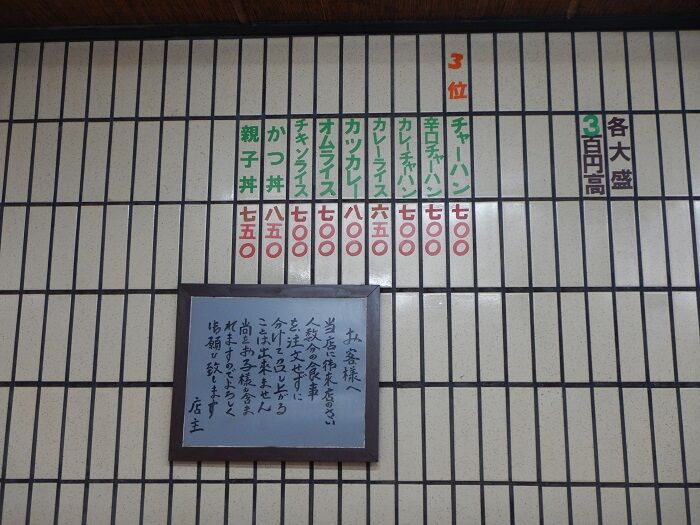 各大盛
3百円高
3位
チャーハン 七〇〇
辛口チャーハン 七〇〇
カレーチャーハン 七〇〇
カレーライス 六五〇
カツカレー 八〇〇
オムライス 七〇〇
チキンライス 七〇〇
かつ丼 八五〇
親子丼 七五〇
お客様へ
当店に御来店のさい
人数分の食事
を注文せずに
分けて召し上がる
ことは出来ません
尚お子様も含ま
れますのでよろしく
御願い致します
店主